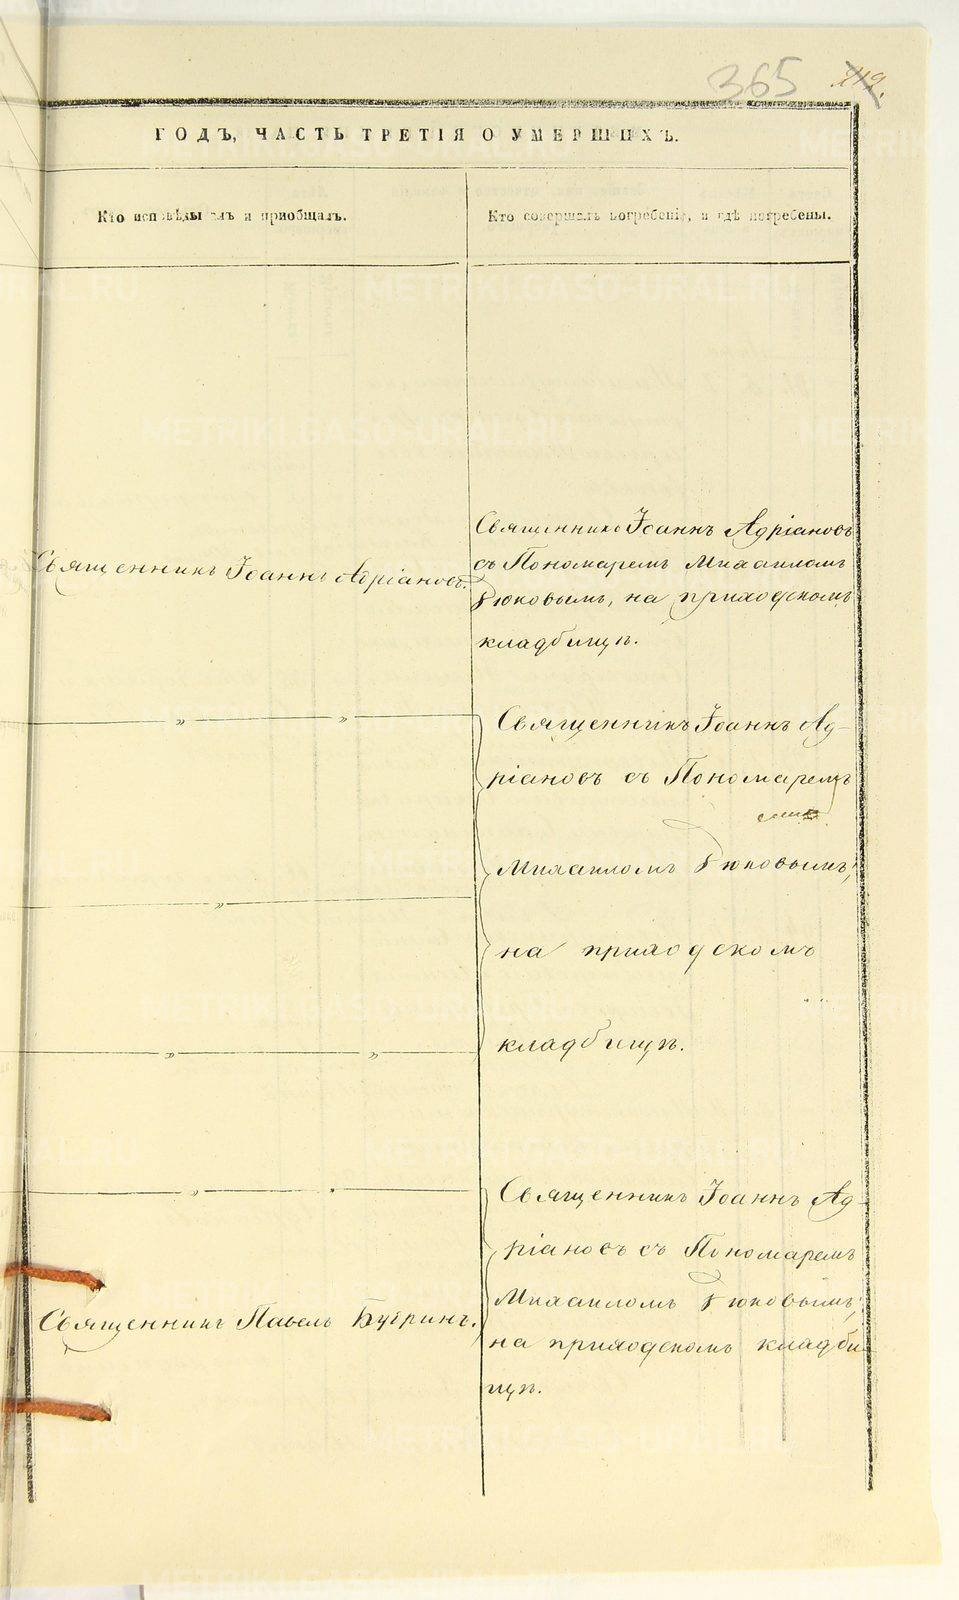 365
ГОДЪ, ЧАСТЬ ТРЕТІЯ О УМЕРШИХЪ.
Кто исповѣдывалъ и пріобщалъ.
Кто совершалъ погребеніе, и гдѣ погребены.
Священникъ Іоаннъ Адріановъ.
Священникъ Іоаннъ Адріановъ
съ Пономаремъ Михаиломъ
Бюковымъ, на приходскомъ
кладбищѣ.
— „ — „ —
Священникъ Іоаннъ Ад-
ріановъ съ Пономаремъ
Михаиломъ Бюковымъ,
— „ —
на приходскомъ
— „ — „ —
кладбищѣ.
— „ —
Священникъ Іоаннъ Ад-
ріановъ съ Пономаремъ
Михаиломъ Бюковымъ,
Священникъ Павелъ Бугринъ.
на приходскомъ кладби-
щѣ.
METRIKI.GASO-URAL.RU